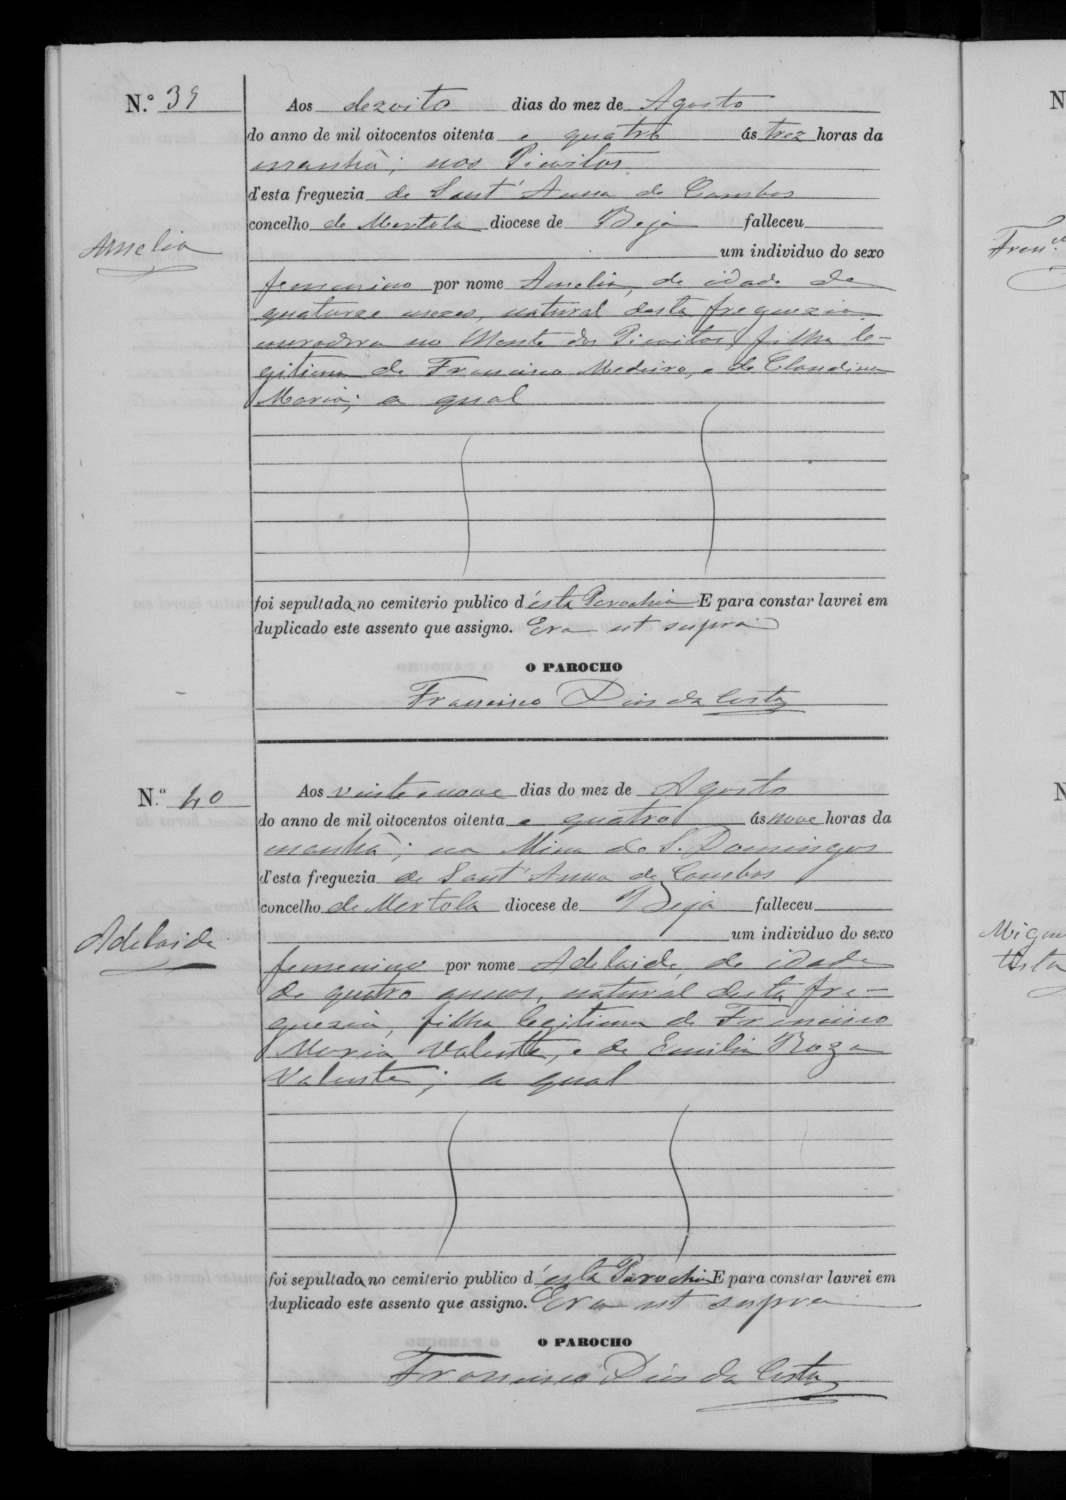 N.º 39
Aos dezoito dias do mez de Agosto
do anno de mil oitocentos oitenta e quatro ás trez horas da
manhã; nos Picoitos
d'esta freguezia de Sant'Anna de Cambas
concelho de Mertola diocese de Beja falleceu
Amelia
um individuo do sexo
femenino por nome Amelia, de idade de
quatorze mezes, natural desta freguezia
moradora no Monte dos Picoitos, filha le-
gitima de Francisco Medeiro, e de Claudina
Maria; a qual
foi sepultada no cemiterio publico d'ésta Parochia E para constar lavrei em
duplicado este assento que assigno. Era ut supra
O PAROCHO
Francisco Dias da Costa
N.º 40
Aos vinte e nove dias do mez de Agosto
do anno de mil oitocentos oitenta e quatro ás nove horas da
manhã; na Mina de S. Domingos
d'esta freguezia de Sant'Anna de Cambas
concelho de Mertola diocese de Beja falleceu
Adelaide
um individuo do sexo
femenino por nome Adelaide, de idade
de quatro annos, natural desta fre-
guezia, filha legitima de Francisco
Maria Valente, e de Emilia Roza
Valente; a qual
foi sepultada no cemiterio publico d'ésta Parochia E para constar lavrei em
duplicado este assento que assigno. Era ut supra
O PAROCHO
Francisco Dias da Costa
N
Fran.co
N
Migu